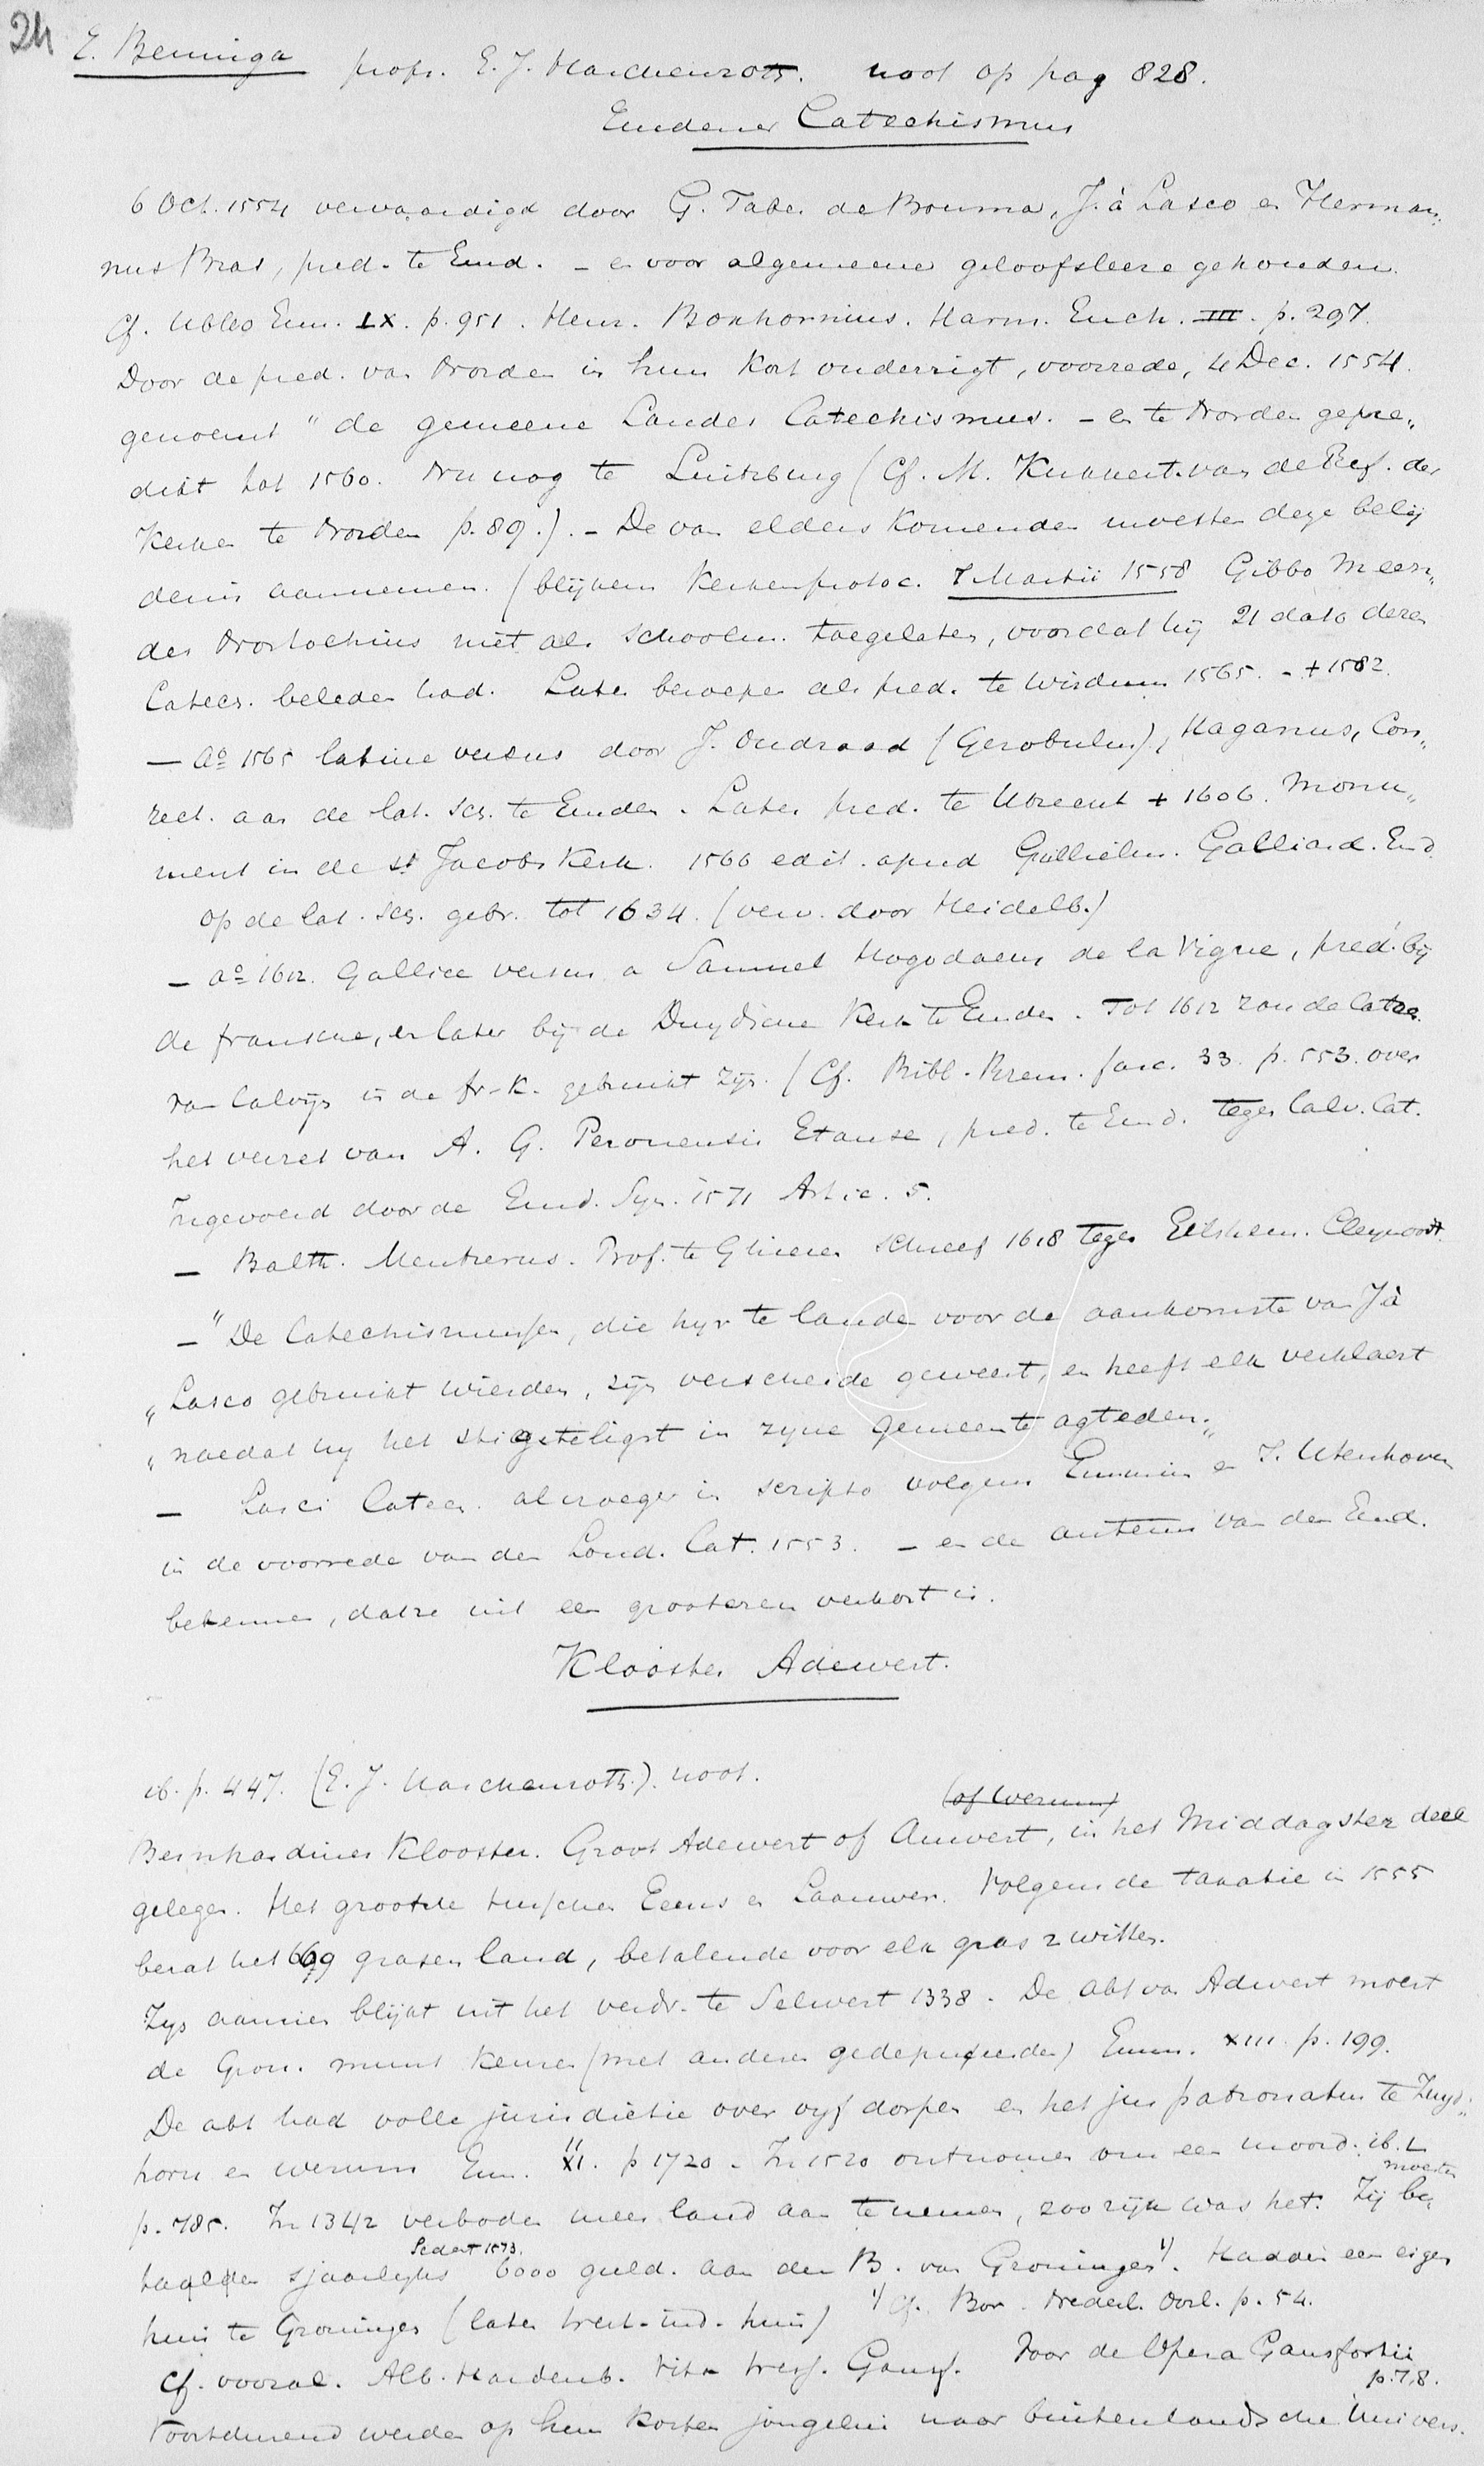 24
E. Beninga profr. E. J. Harckenroth. noot op pag 828.
Emdener Catechismus
6 Oct. 1554 vervaardigd door G. Taber de Bouma, J. à Lasco en Herman„
nus Bras, pred. te Emd. – en voor algemeene geloofsleere gehouden.
Cf. Ubbo Em. LX. p. 951. Henr. Boxhornius. Harm. Euch. III. p. 297.
Door de pred. van Norden in hun Kort onderrigt, voorrede, 4 Dec. 1554.
genoemt "de gemeene Landes Catechismus. – en te Norden gepre„
dikt tot 1560. Nu nog te Lützburg (Cf. M. van de Ref. der
Kerken te Norden p. 89.). – De van elders komenden moesten deze belij
denis aannemen. (blijkens Kerkenprotoc. 7 Martii 1558 Gibbo Meen„
des niet als schoolm. toegelaten, voordat hij 21 dato deren
Catech. beleden had. Later beroepen als pred. te Wirdum 1565. – + 1582.
– Aº 1565 latine versus door J. Oudraad (Gerobulus), Haganus, Con„
rect. aan de lat. sch. te Emden. Later pred. te Utrecht + 1606. Monu„
ment in de St Jacobs Kerk. 1566 edit. apud Gullielm. Galliard. Emd.
op de lat. sch. gebr. tot 1634. (verv. door Heidelb.)
– aº 1612. Gallice versus a Samuel de la Vigne, pred. bij
de fransche, en later bij de Duydsche Kerk te Emden. Tot 1612 zou de Catec.
van Calvijn in de fr-K. gebruikt zijn. (Cf. Bibl. Brem. fasc. 33. p. 553. over
het verzet van A. G. Peronensis Etause, pred. te Emd. tegen Calv. Cat.
Ingevoerd door de Emd. Syn. 1571 Artic. 5.
– Balth. Mentzerus. Prof. te Ghiesen schreef 1618 tegen Eilshem. Cleynoodt.
–"De Catechismussen, die hyr te lande voor de aankomste van J à
„Lasco gebruikt wierden, zijn verscheide geweest, en heeft elk verklaert
„naedat hy het stigteligst in zyne gemeente agteden.„
– Lasci Catech. al vroeger in scripto volgens Emmius en J. Utenhoven
in de voorrede van den Lond. Cat. 1553. – en de auteurs van den Emd.
bekennen, dat ze uit een grooteren verkort is.
Klooster Adewert.
ib. p. 447. (E. J. Harckenroth.) noot.
(of Werum)
Bernhardiner Klooster. Groot Adewert of Auwert, in het Middagster deel
gelegen. Het grootste tusschen Eems en Laauwer. Volgens de taxatie in 1555
bezat het 6699 grasen land, betalende voor elk gras 2 witten.
Zyn aanzien blijkt uit het verdr. te Selwert 1338. De abt van Adwert moest
de Gron. munt keuren (met andere gedeputeerden) Emm. XIII. p. 199.
De abt had volle jurisdictie over vijf dorpen en het jus patronatus te Zuyd„
horn en Werum Em. XI. p 1720. In 1520 ontnomen om een moord. ib. L
p. 785. In 1342 verboden meer land aan te nemen, zoo rijk was het. Zij be„
moesten
Sedert 1573.
taalden sjaarlyks 6000 guld. aan den B. van Groningen 1). Hadden een eigen
huis te Groningen (later West-ind. huis) 1) Cf. Bor. Nederl. Oorl. p. 54.
Cf. vooral. Alb. Hardenb. Vita Wess. Gansf. Voor de Opera Gansfortii
p. 7, 8.
Voortdurend werden op hun kosten jongelui naar buitenlandsche Univers.